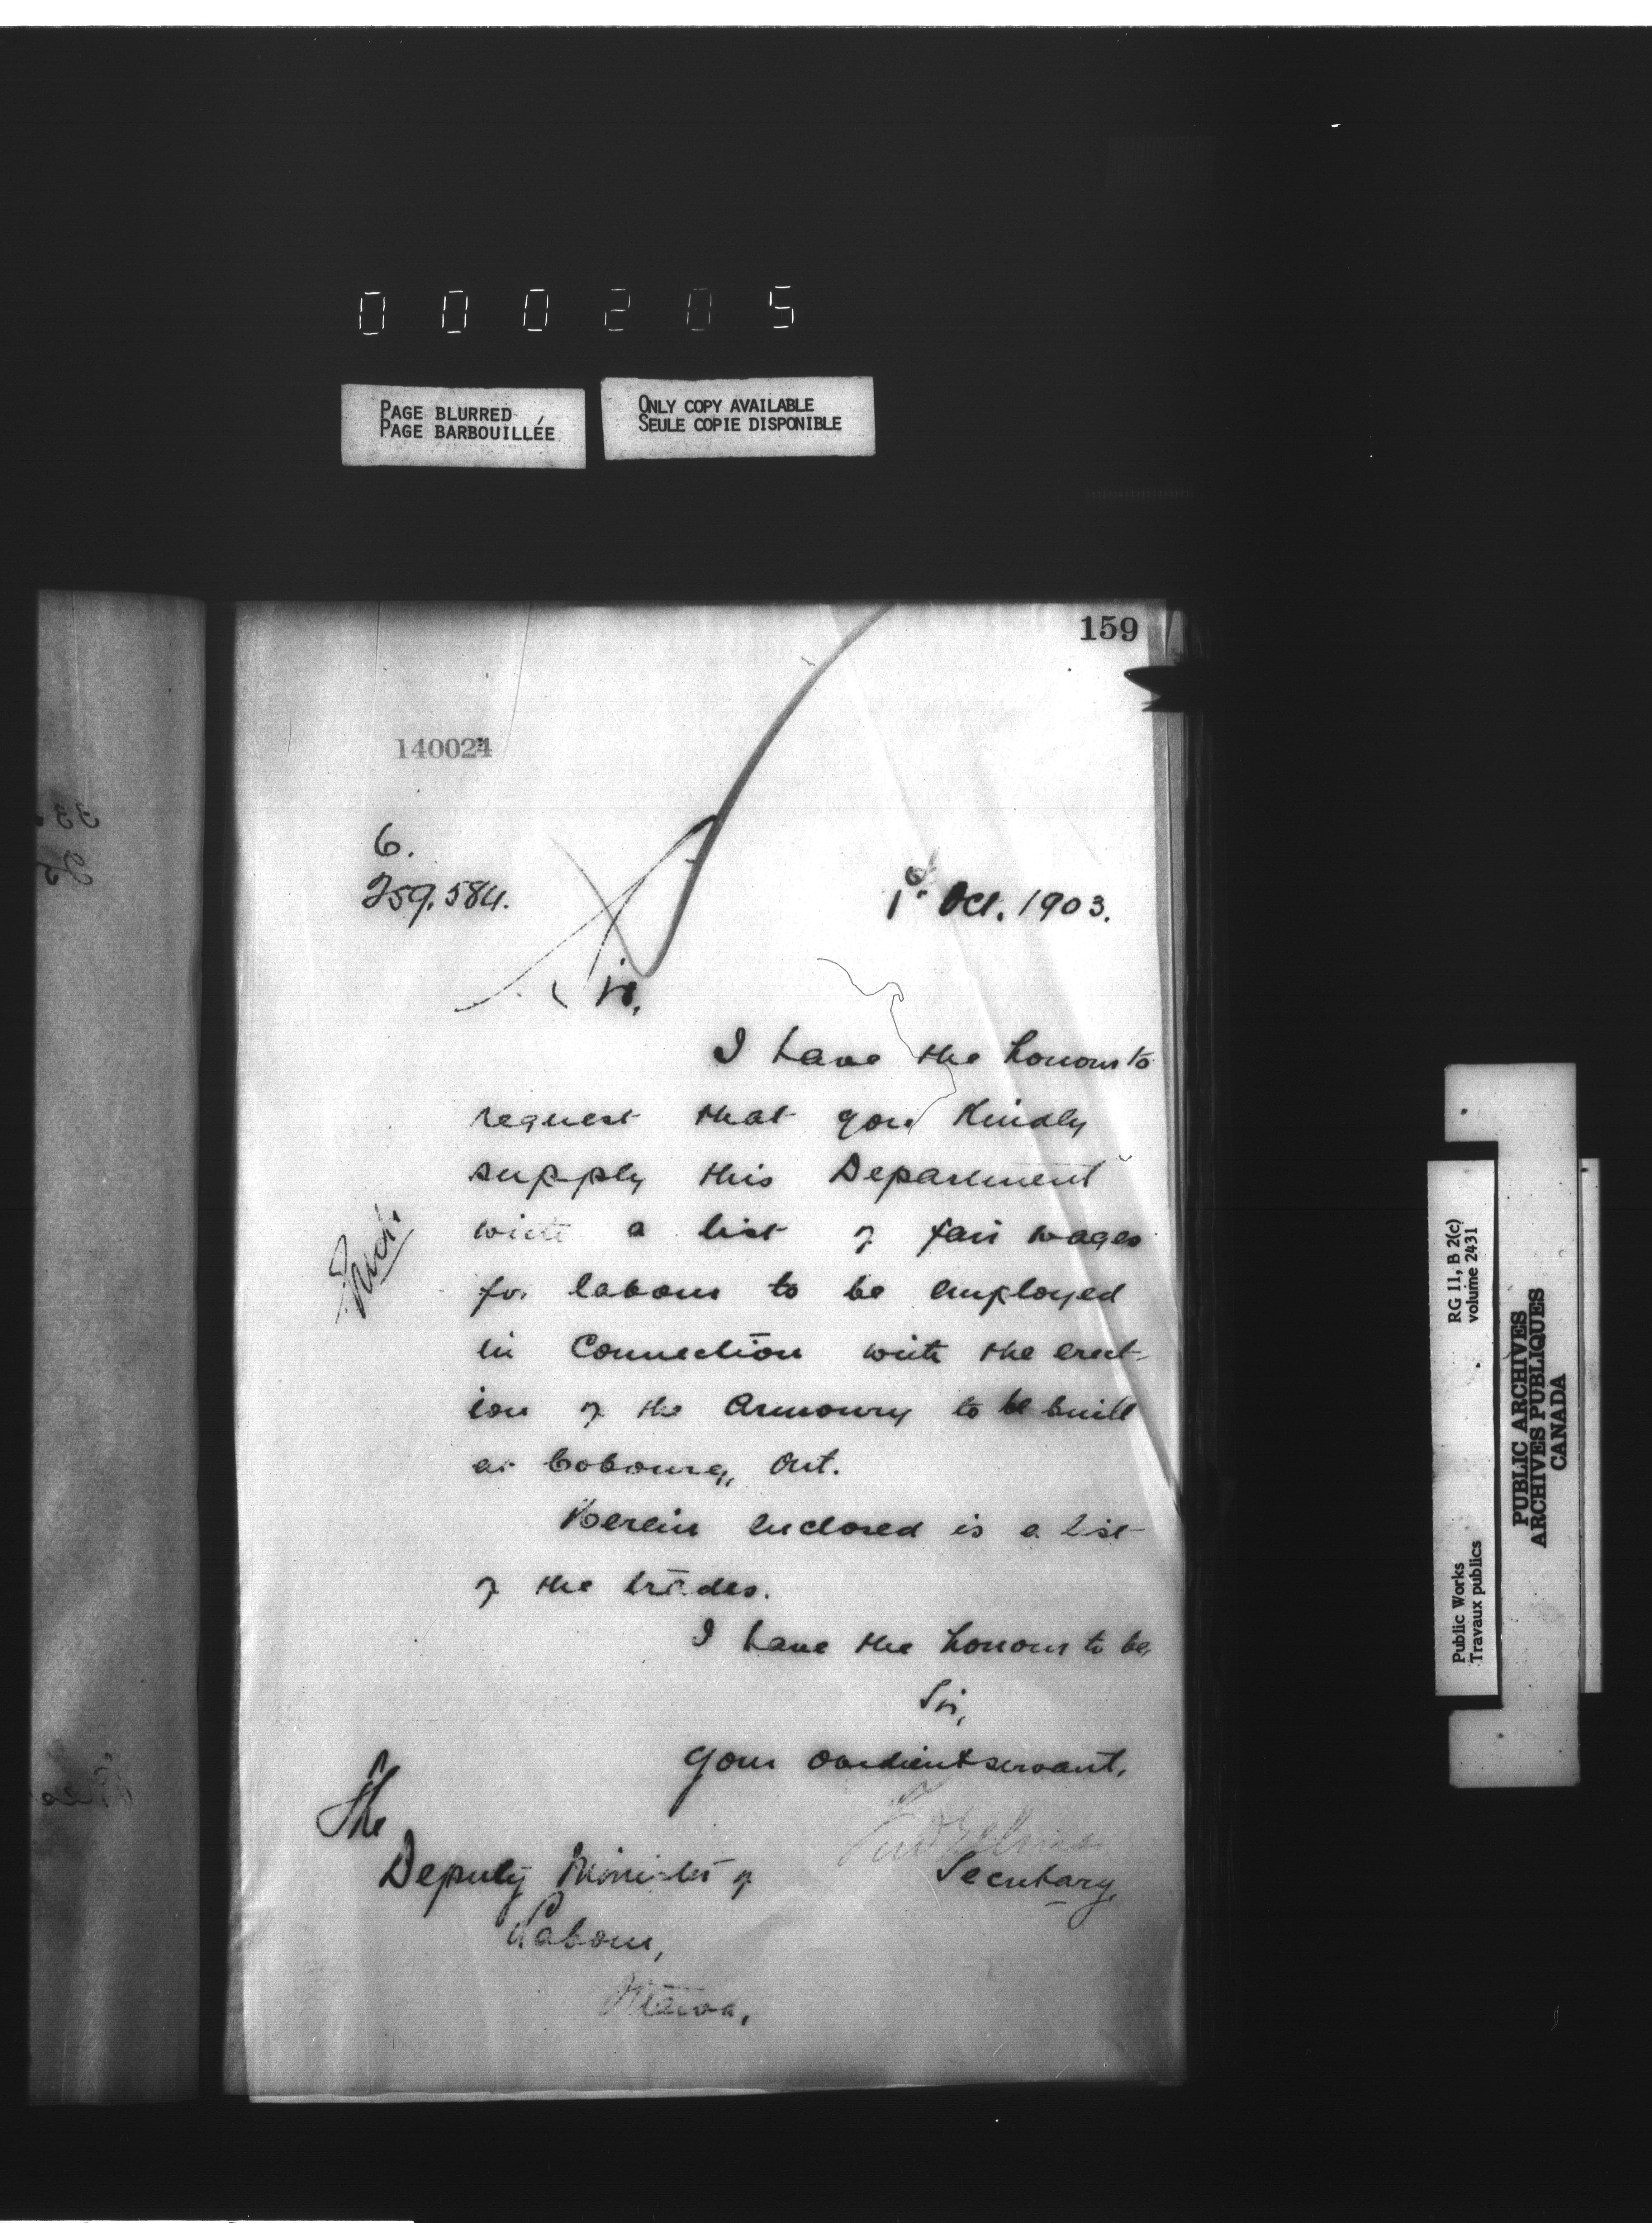 000205
PAGE BLURRED
PAGE BARBOUILLÉE
ONLY COPY AVAILABLE
SEULE COPIE DISPONIBLE
159
140024
6.
259,584.
1st Oct. 1903.
Sir,
I have the honour to
request that you kindly
supply this Department
with a list of fair wages
for labour to be employed
in connection with the erect-
ion of the Armoury to be built
at Cobourg, Ont.
Herein enclosed is a list
of the trades.
I have the honour to be,
Sir,
Your obedient servant,
Secretary,
The
Deputy Minister of
Labour,
Ottawa,
RG 11, B 2(c)
volume 2431
Public Works
Travaux publics
PUBLIC ARCHIVES
ARCHIVES PUBLIQUES
CANADA